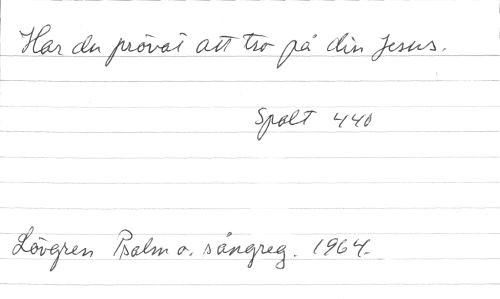 Har du prövat att tro på din Jesus.
Spalt 440
Lövgren Psalm o. sångreg. 1964.